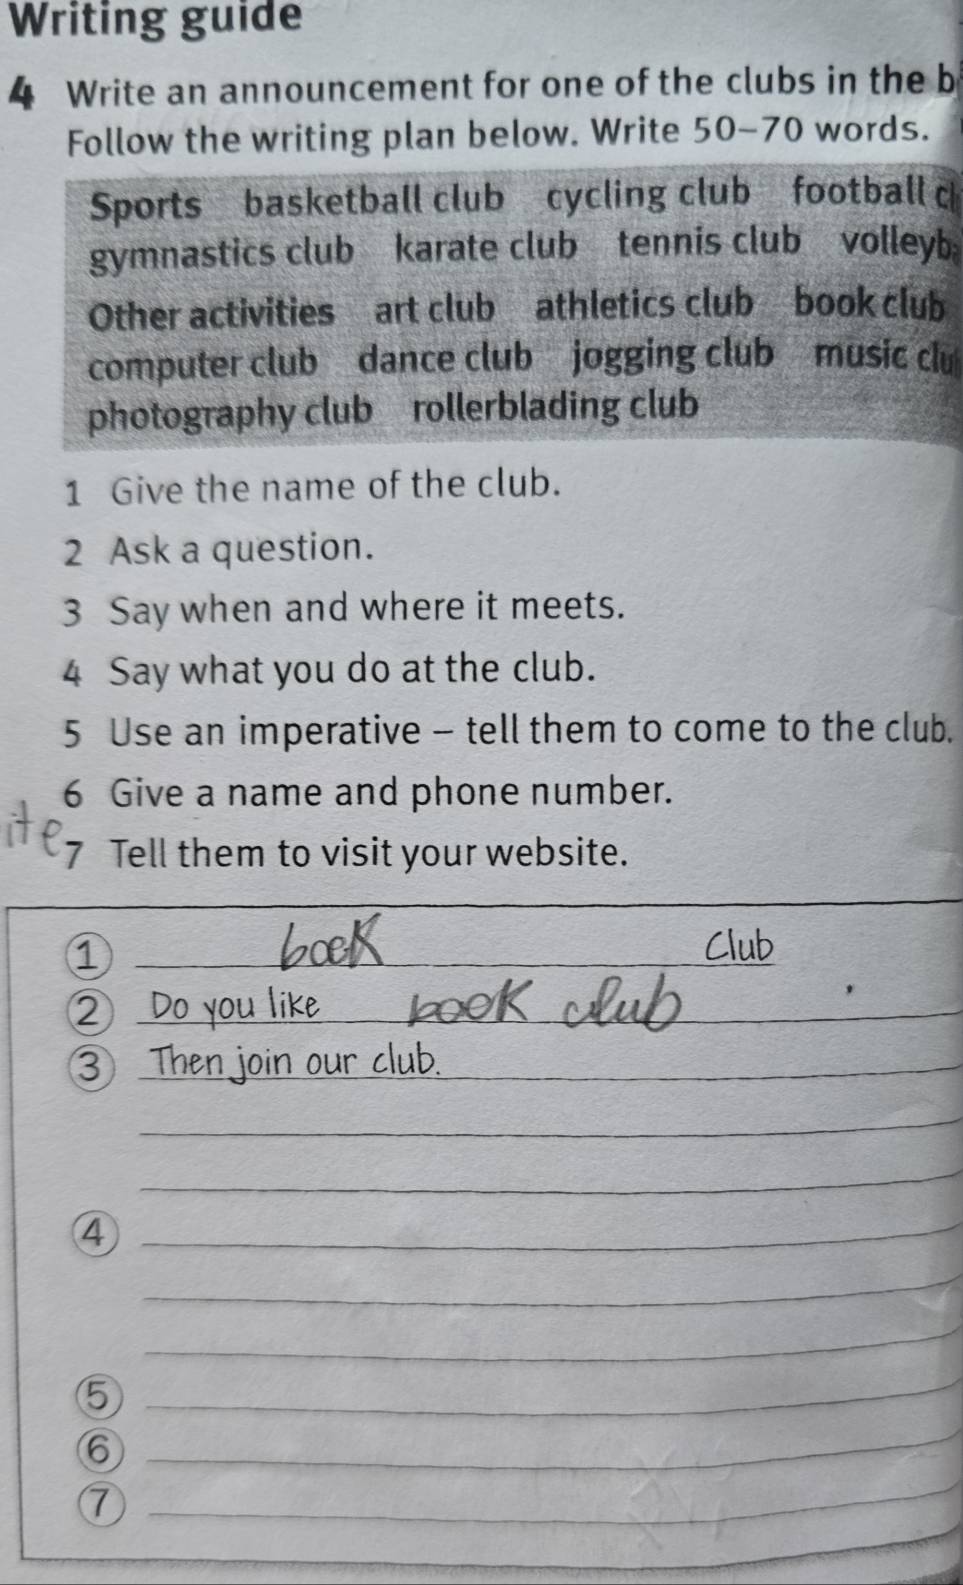 Writing guide
4 Write an announcement for one of the clubs in the
Follow the writing plan below. Write 50–70 words.
Sports basketball club cycling club football
gymnastics club karate club tennis club
Other activities art club athletics club book club
computer club dance club jogging club music
photography club rollerblading club
1 Give the name of the club.
2 Ask a question.
3 Say when and where it meets.
4 Say what you do at the club.
5 Use an imperative – tell them to come to the club.
6 Give a name and phone number.
ite
7 Tell them to visit your website.
1 book Club
2 Do you like book club
3 Then join our club.
4
5
6
7